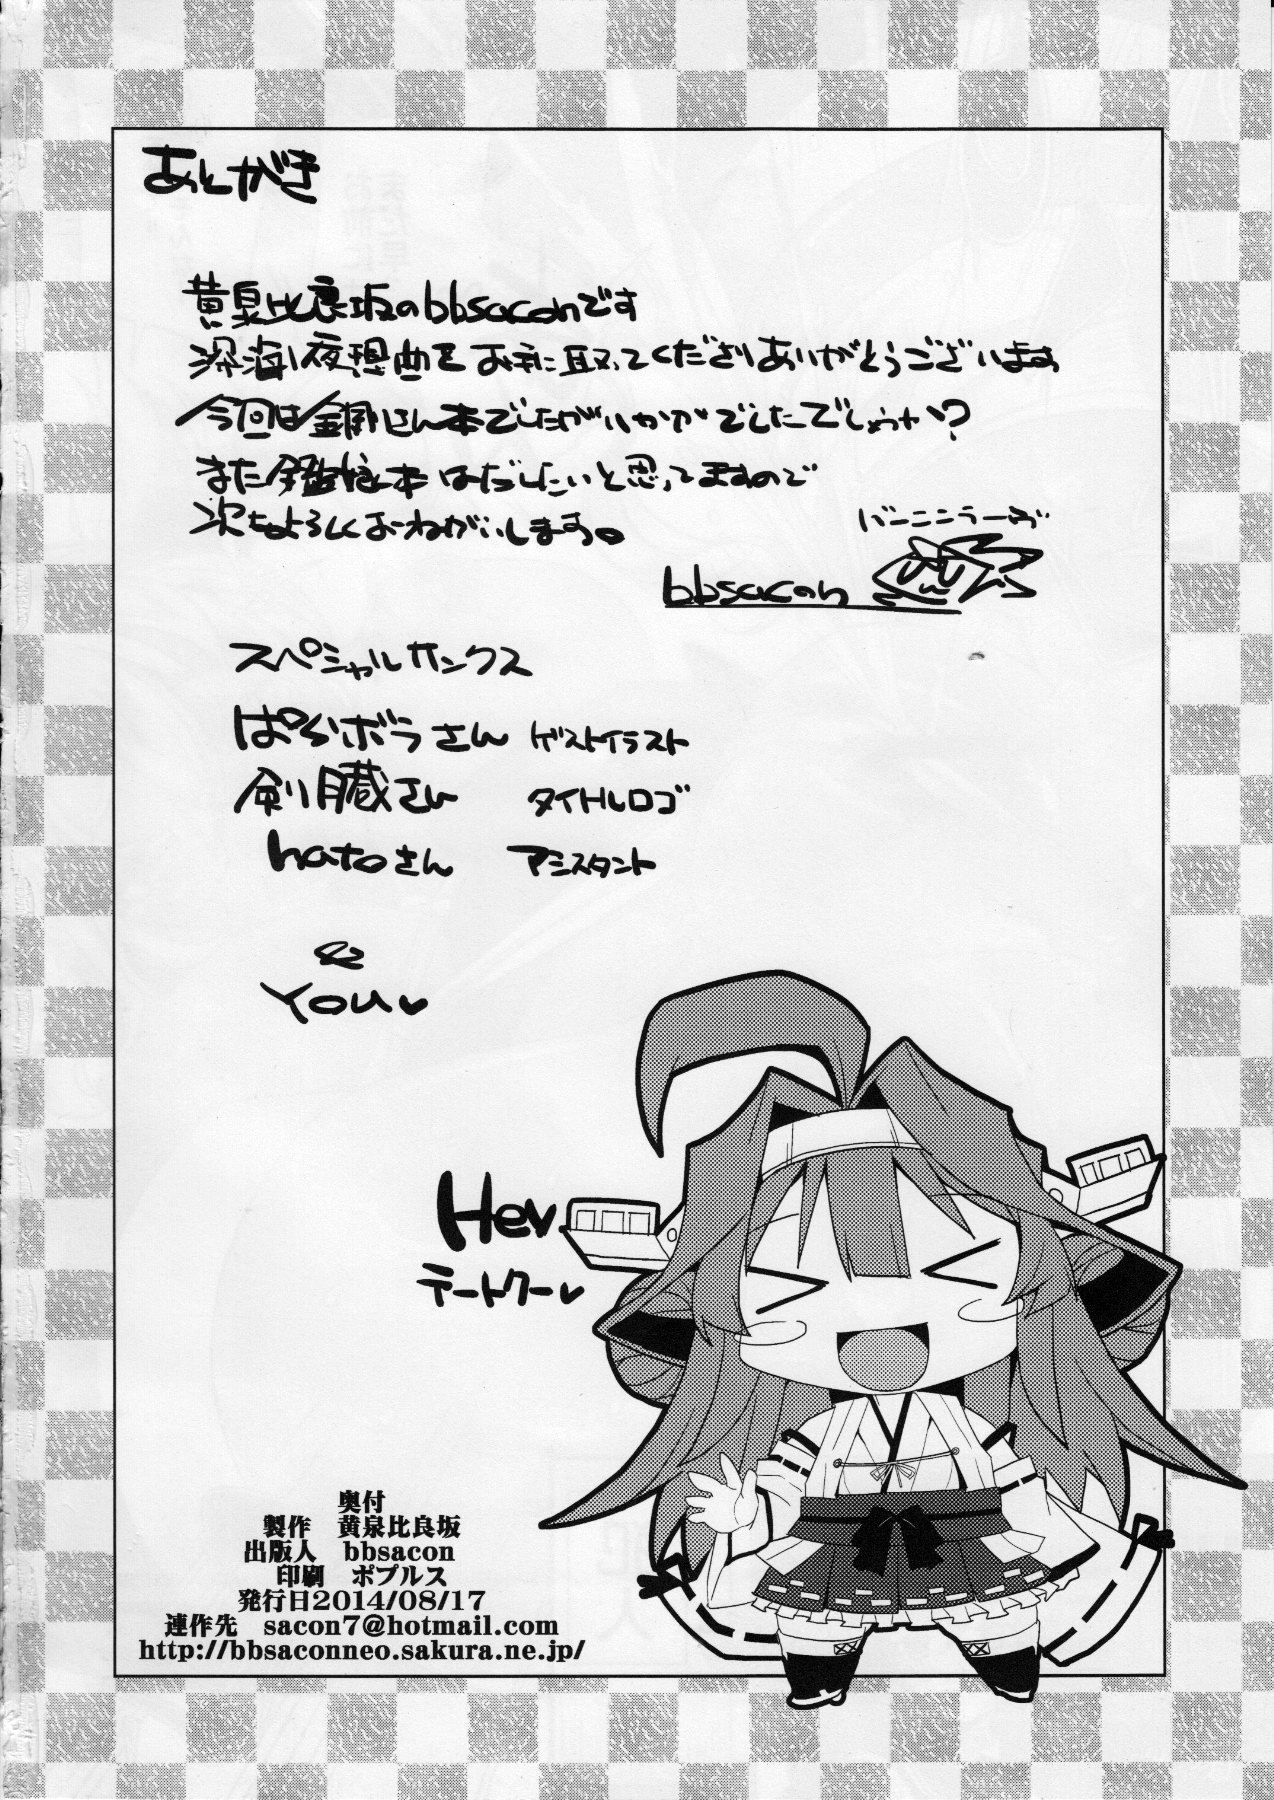 あとがき
黄泉比良坂のbbsaconです
深海夜想曲をお手に取ってくださりありがとうございます
今回は金剛さん本でしたがいかがでしたでしょうか?
また艦娘本はだしたいと思ってますので
次もよろしくおーねがいします。
バーニンラーブ
bbsacon
スペシャルサンクス
ぱらボラさん ゲストイラスト
剣月蔵さん タイトルロゴ
hatoさん アシスタント
&
You♥
Hey
テートクー♥
奥付
製作 黄泉比良坂
出版人 bbsacon
印刷 ポプルス
発行日2014/08/17
連作先 sacon7@hotmail.com
http://bbsaconneo.sakura.ne.jp/